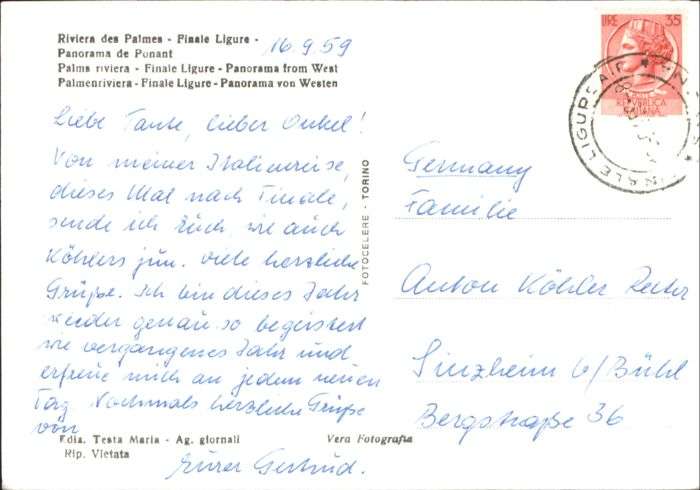 Riviera des Palmes - Finale Ligure -
16 9 59
Panorama de Ponant
Palms riviera - Finale Ligure - Panorama from West
Palmenriviera - Finale Ligure - Panorama von Westen
LIRE 35
REPUBBLICA
ITALIANA
FINALE LIGURE
Liebe Tante, lieber Onkel!
Von meiner Italienreise,
dieses Mal nach Finale,
sende ich Euch, wie auch
Köhlers jun. viele herzliche
Grüße. Ich bin dieses Jahr
wieder genau so begeistert
wie vergangenes Jahr und
erfreue mich an jedem neuen
Tag. Nochmals herzliche Grüße
von
Eurer Gertrud.
FOTOCELERE - TORINO
Germany
Familie
Anton Köhler
Sinzheim b/Bühl
Bergstraße 36
Edia. Testa Maria - Ag. giornali
Rip. Vietata
Vera Fotografia